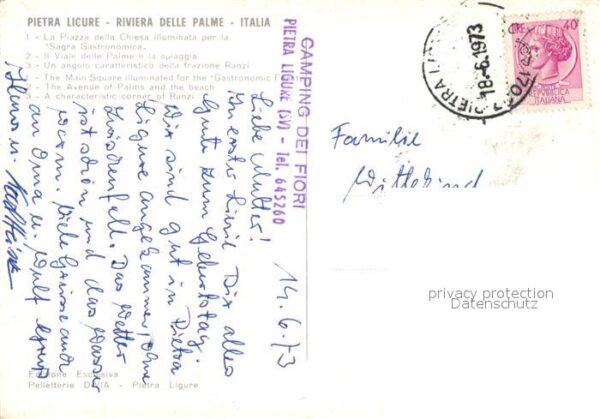 PIETRA LIGURE - RIVIERA DELLE PALME - ITALIA
1 - La Piazza della Chiesa illuminata per la
"Sagra Gastronomica".
2 - Il Viale delle Palme e la spiaggia
3 - Un angolo caratteristico della frazione Ranzi
1 - The Main Square illuminated for the "Gastronomic F
2 - The Avenue of Palms and the beach
3 - A characteristic corner of Ranzi
CAMPING DEI FIORI
PIETRA LIGURE (SV) - Tel. 645260
14.6.73
Liebe Mutter!
In erster Linie Dir alles
Gute zum Geburtstag.
Wir sind gut in Pietra
Ligure angekommen, ohne
Zwischenfall. Das Wetter
ist schön und das Wasser
warm. Viele Grüsse auch
an Oma u. Wulf
Heino u.
Familie
Wittekind
PIETRA
18-6.1973
17027
40
REPUBBLICA
ITALIANA
privacy protection
Datenschutz
Edizione Esclusiva
Pelletterie DAIIA - Pietra Ligure